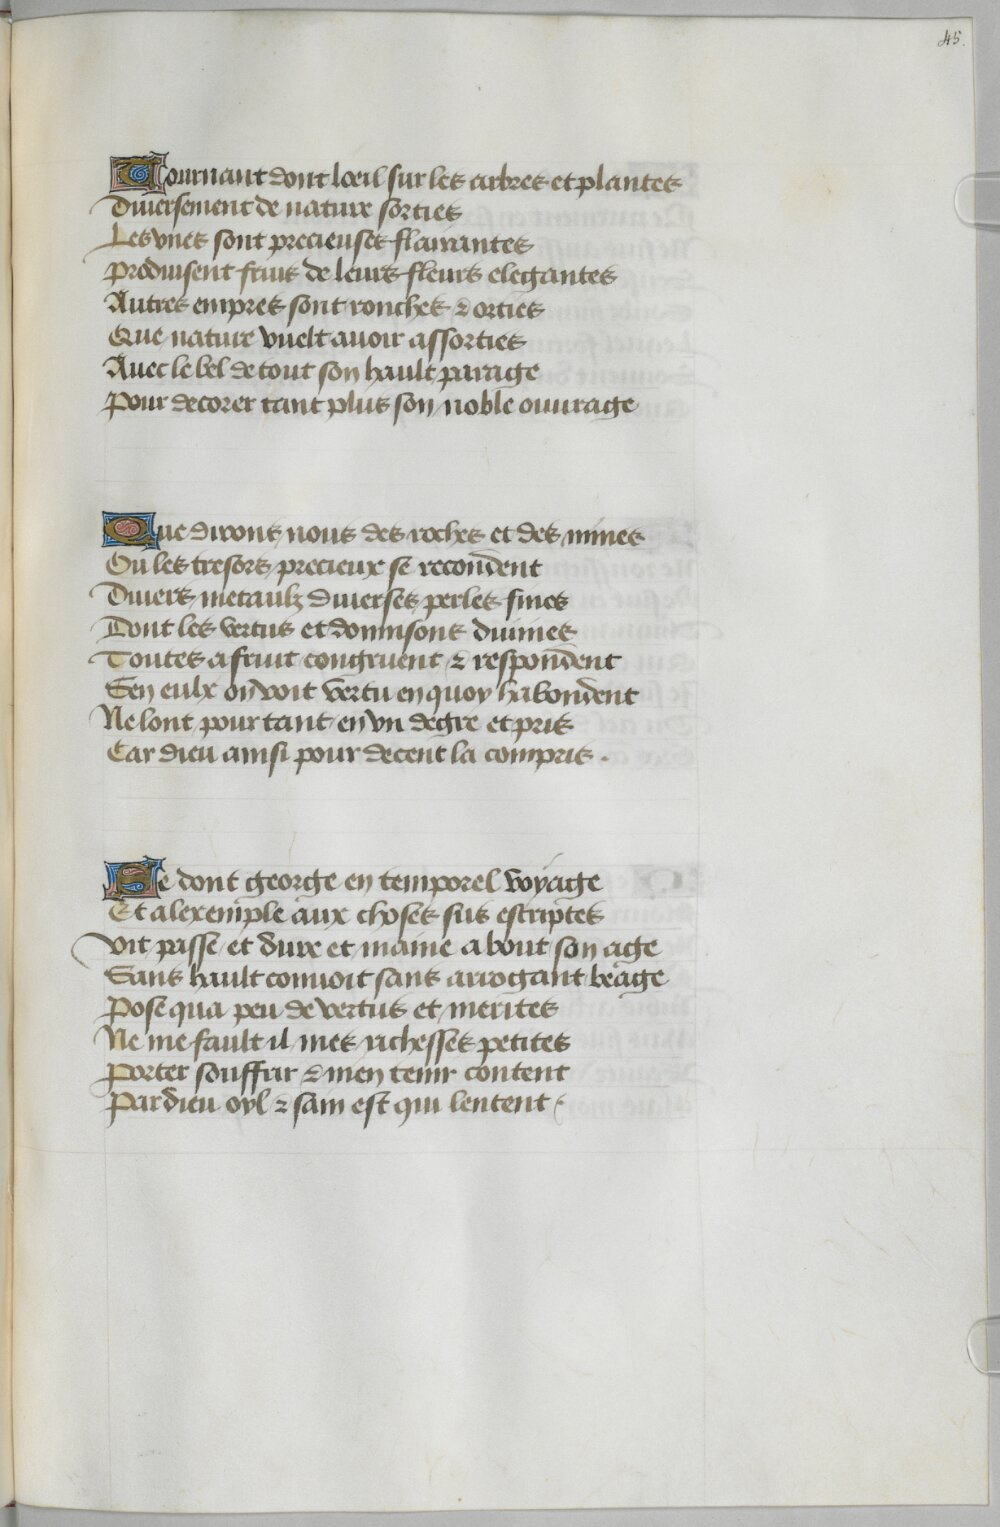 45.
Tournant dont loeil sur les arbres et plantes
Diuersement de nature sorties
Les vnes sont precieuses flairantes
Produisent fruis de leurs fleurs elegantes
Autres empres sont ronches & orties
Que nature vuelt auoir assorties
Auec le bel de tout son hault parage
Pour decorer tant plus son noble ouurage
Que dirons nous des roches et des mines
Ou les tresors precieux se recondent
Diuers metaulz diuerses perles fines
Dont les vertus et donnisons diuines
Toutes a fruit congruent & respondent
Sen eulx on voit vertu en quoy habondent
Ne lont pour tant en vn degre et pris
Car dieu ainsi pour decent la compris .
Se dont george en temporel voyage
Et alexemple aux choses sus escriptes
Vit passe et dure et maine a bout son age
Sans hault conuoit sans arrogant beage
Pose qua peu de vertus et merites
Ne me fault il mes richesses petites
Porter souffrir & men tenir content
Par dieu oyl & sain est qui lentent